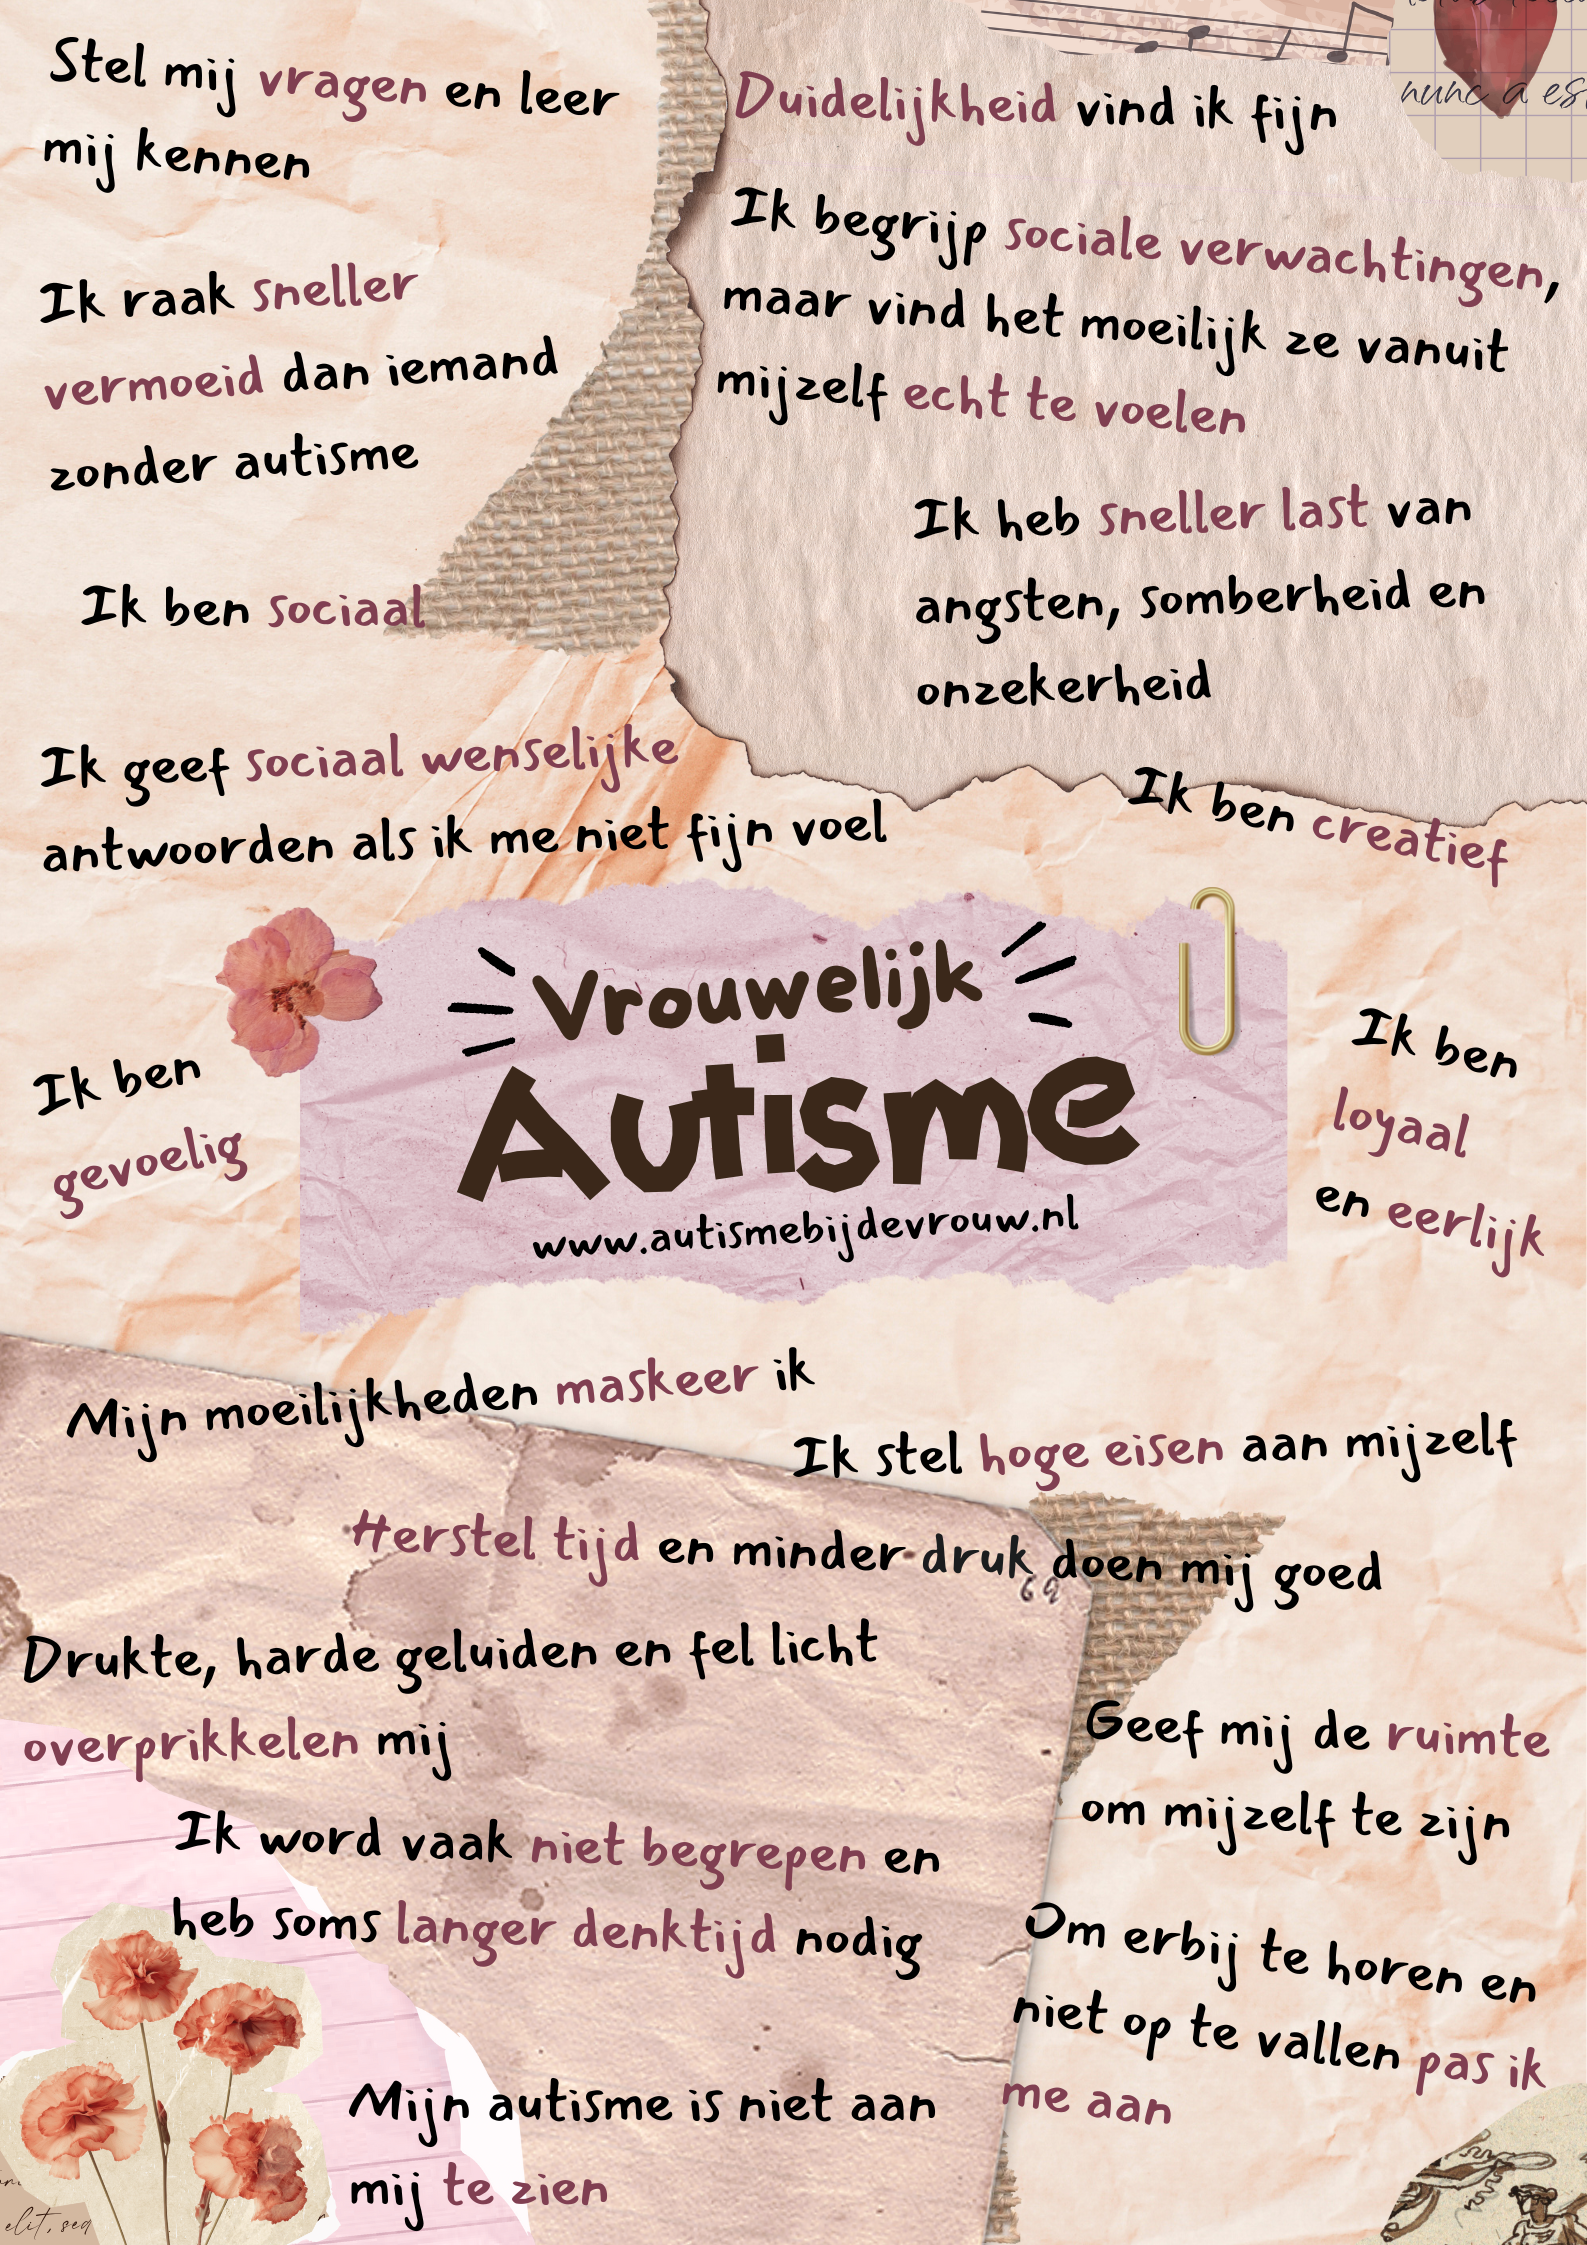 Stel mij vragen en leer
mij kennen
Duidelijkheid vind ik fijn
nunc a es
Ik begrijp sociale verwachtingen,
maar vind het moeilijk ze vanuit
mijzelf echt te voelen
Ik raak sneller
vermoeid dan iemand
zonder autisme
Ik heb sneller last van
angsten, somberheid en
onzekerheid
Ik ben sociaal
Ik geef sociaal wenselijke
antwoorden als ik me niet fijn voel
Ik ben creatief
Vrouwelijk
Autisme
www.autismebijdevrouw.nl
Ik ben
gevoelig
Ik ben
loyaal
en eerlijk
Mijn moeilijkheden maskeer ik
Ik stel hoge eisen aan mijzelf
Herstel tijd en minder druk doen mij goed
69
Drukte, harde geluiden en fel licht
overprikkelen mij
Geef mij de ruimte
om mijzelf te zijn
Ik word vaak niet begrepen en
heb soms langer denktijd nodig
Om erbij te horen en
niet op te vallen pas ik
me aan
Mijn autisme is niet aan
mij te zien
elit, sed